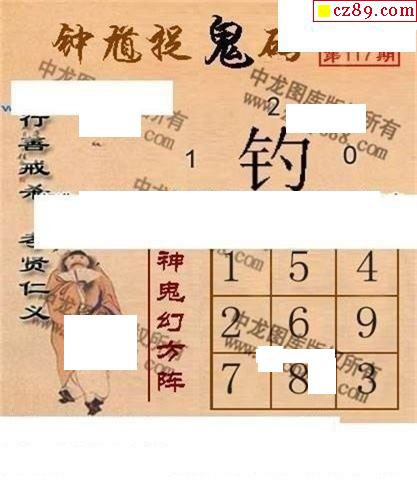 cz89.com
钟馗捉鬼码
第117期
行善戒杀
老贤仁义
2
1 钓 0
神鬼幻方阵
1 5 4
2 6 9
7 8 3
中龙图库版权所有